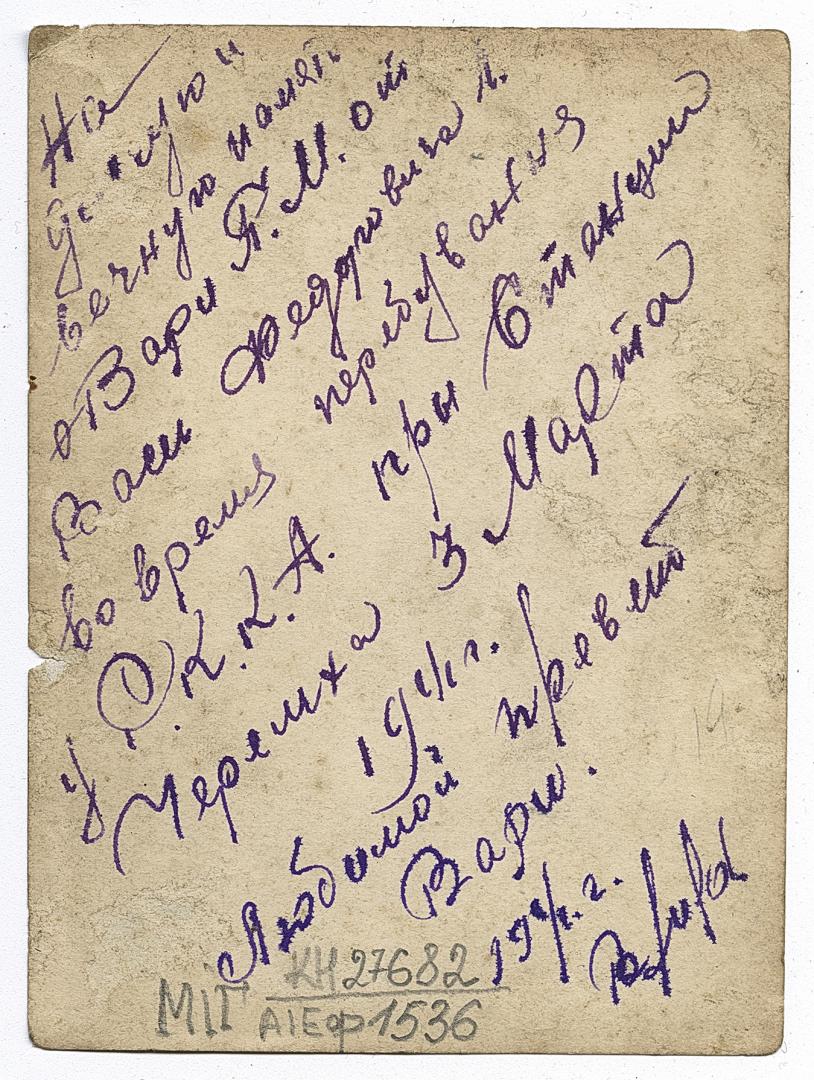 На
долгую и
вечную память
от Вари Г. М. от
Васи Федоровича Л.
во время перебувания
у Р.К.К.А. при Станции
Черемха 3 Марта
1941 г.
Любимой превет
Варю.
1941. г.
КН 27682
МІГ АІЕФ 1536